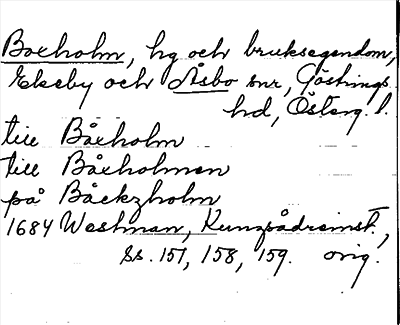 Boxholm, hg och bruksegendom,
Ekeby och Åsbo snr, Göstrings
hd, Österg. l.
till Båxholm
till Båxholmen
på Bäckzholm
1684 Westman, Kunzpådræinst.,
ss. 157, 158, 159. orig.